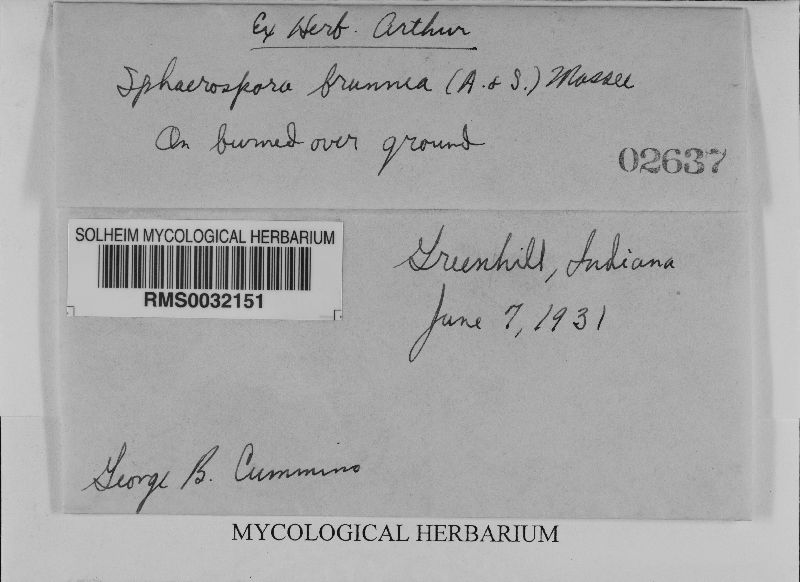 Ex Herb. Arthur
Sphaerospora brunnea (A. & S.) Massee
On burned over ground
02637
SOLHEIM MYCOLOGICAL HERBARIUM
RMS0032151
Greenhill, Indiana
June 7, 1931
George B. Cummins
MYCOLOGICAL HERBARIUM